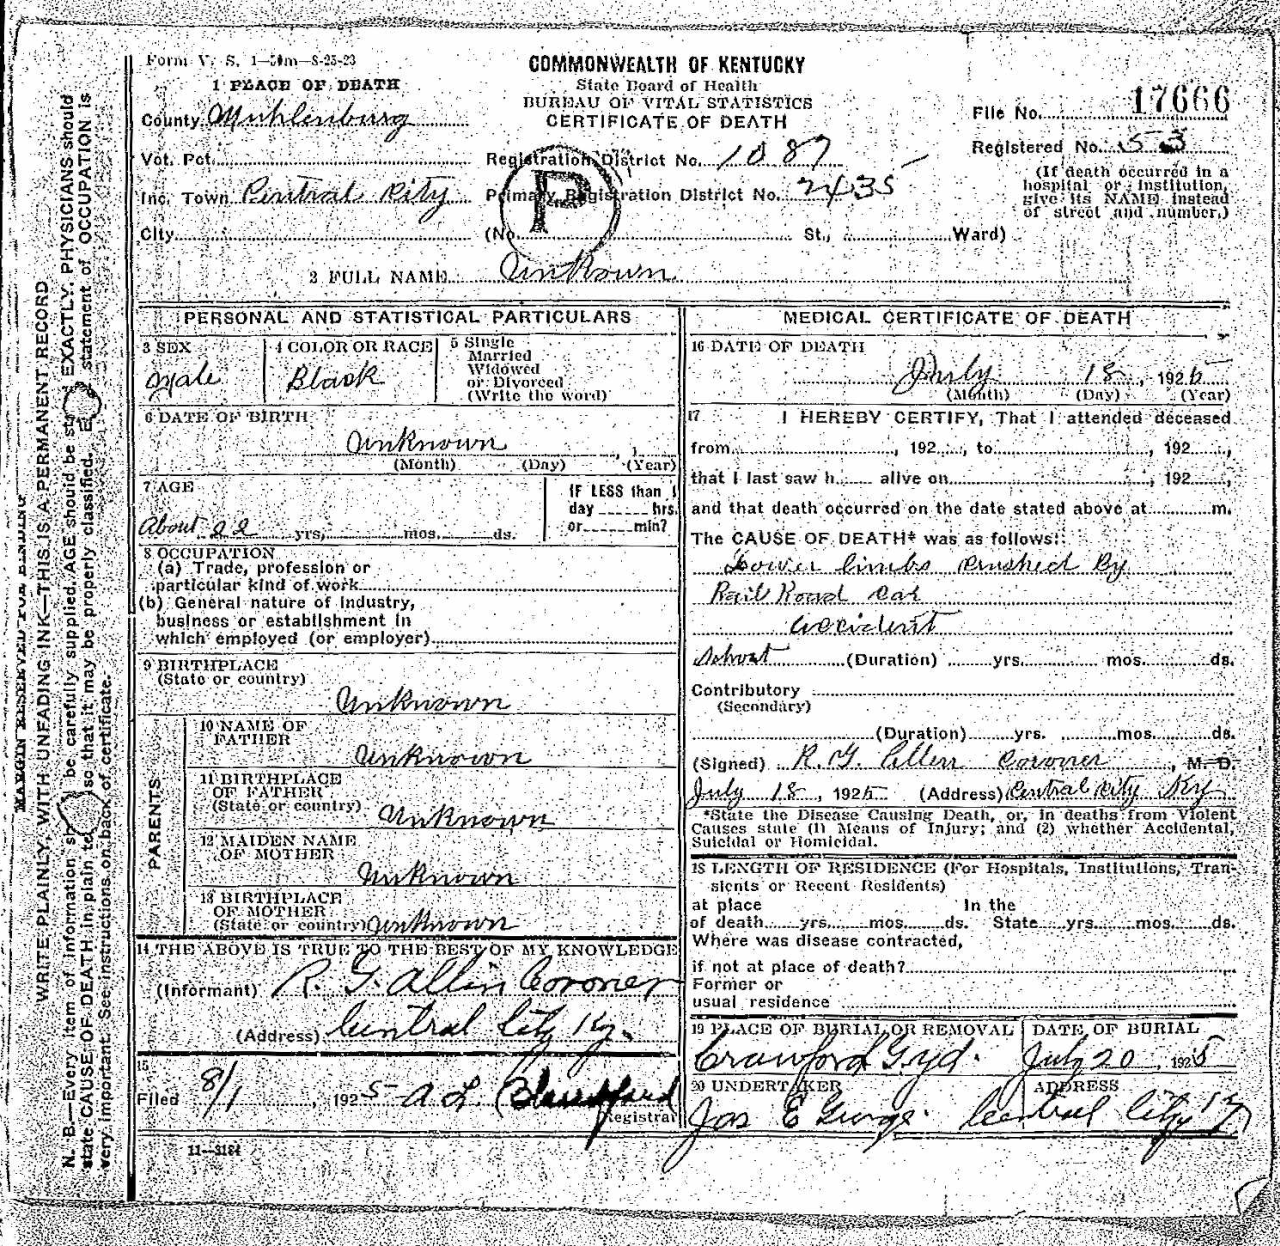 Form V. S. 1—50m—8-25-23
COMMONWEALTH OF KENTUCKY
State Board of Health
BUREAU OF VITAL STATISTICS
CERTIFICATE OF DEATH
File No. 17666
Registered No. 53
(If death occurred in a
hospital or institution,
give its NAME instead
of street and number.)
1 PLACE OF DEATH
County Muhlenburg
Vot. Pct.
Registration District No. 1087
Inc. Town Central City
Primary Registration District No. 2435
P
City (No. St., Ward)
2 FULL NAME Unknown
PERSONAL AND STATISTICAL PARTICULARS
3 SEX
Male
4 COLOR OR RACE
Black
5 Single
Married
Widowed
or Divorced
(Write the word)
6 DATE OF BIRTH
Unknown , 1
(Month) (Day) (Year)
7 AGE
About 22 yrs, mos. ds.
IF LESS than 1
day hrs.
or min?
8 OCCUPATION
(a) Trade, profession or
particular kind of work
(b) General nature of Industry,
business or establishment in
which employed (or employer)
9 BIRTHPLACE
(State or country)
Unknown
PARENTS
10 NAME OF
FATHER
Unknown
11 BIRTHPLACE
OF FATHER
(State or country)
Unknown
12 MAIDEN NAME
OF MOTHER
Unknown
13 BIRTHPLACE
OF MOTHER
(State or country) Unknown
14 THE ABOVE IS TRUE TO THE BEST OF MY KNOWLEDGE
(Informant) R. G. Allen Coroner
(Address) Central City Ky.
15
Filed 8/1, 1925 A. L. Registrar
11—3184
MEDICAL CERTIFICATE OF DEATH
16 DATE OF DEATH
July 18, 1925
(Month) (Day) (Year)
17 I HEREBY CERTIFY, That I attended deceased
from , 192 , to , 192 ,
that I last saw h alive on , 192 ,
and that death occurred on the date stated above at m.
The CAUSE OF DEATH* was as follows:
Lower limbs crushed By
Rail Road Car
accident
(Duration) yrs. mos. ds.
Contributory
(Secondary)
(Duration) yrs. mos. ds.
(Signed) R. G. Allen Coroner, M. D.
July 18, 1925 (Address) Central City Ky
*State the Disease Causing Death, or, in deaths from Violent
Causes state (1) Means of Injury; and (2) whether Accidental,
Suicidal or Homicidal.
18 LENGTH OF RESIDENCE (For Hospitals, Institutions, Tran-
sients or Recent Residents)
at place In the
of death yrs. mos. ds. State yrs. mos. ds.
Where was disease contracted,
if not at place of death?
Former or
usual residence
19 PLACE OF BURIAL OR REMOVAL
Crawford Gyd.
DATE OF BURIAL
July 20, 1925
20 UNDERTAKER
Jas E George
ADDRESS
Central City Ky
MARGIN RESERVED FOR BINDING
WRITE PLAINLY, WITH UNFADING INK—THIS IS A PERMANENT RECORD
N. B.—Every item of information be carefully supplied. AGE should be EXACTLY. PHYSICIANS should
state CAUSE OF DEATH in plain so that it may be properly classified. statement of OCCUPATION is
very important. See instructions on back of certificate.